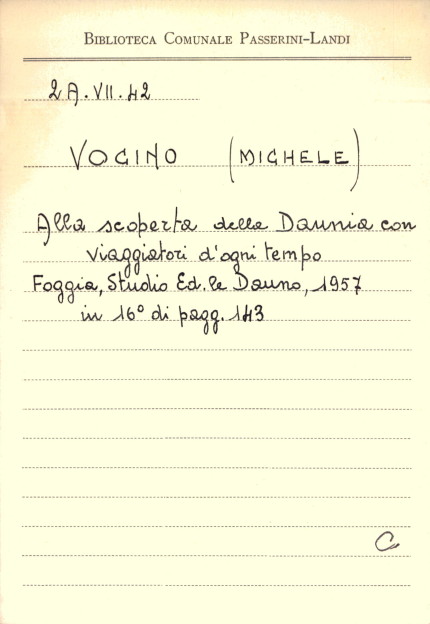 BIBLIOTECA COMUNALE PASSERINI-LANDI
2A.VII.42
VOCINO (MICHELE)
Alla scoperta della Daunia con
viaggiatori d'ogni tempo
Foggia, Studio Ed.le Dauno, 1957
in 16° di pagg. 143
C